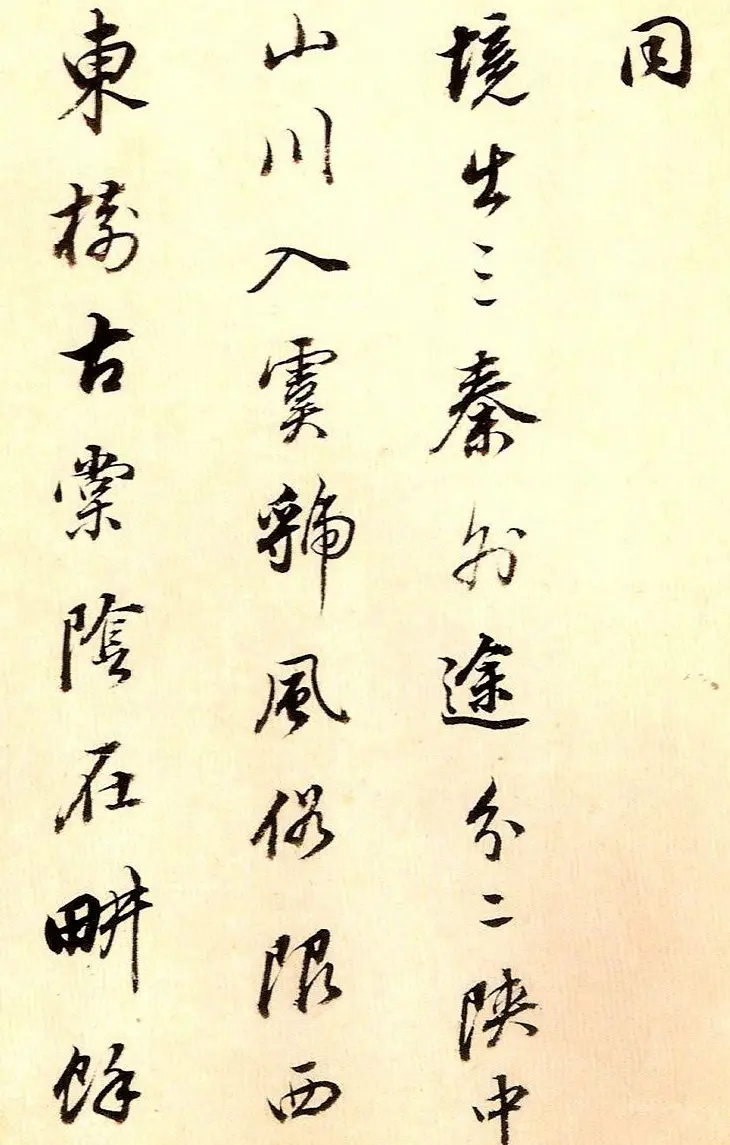 同
境出三秦外途分二陝中
山川入虞虢風俗限西
東樹古棠陰在畊餘